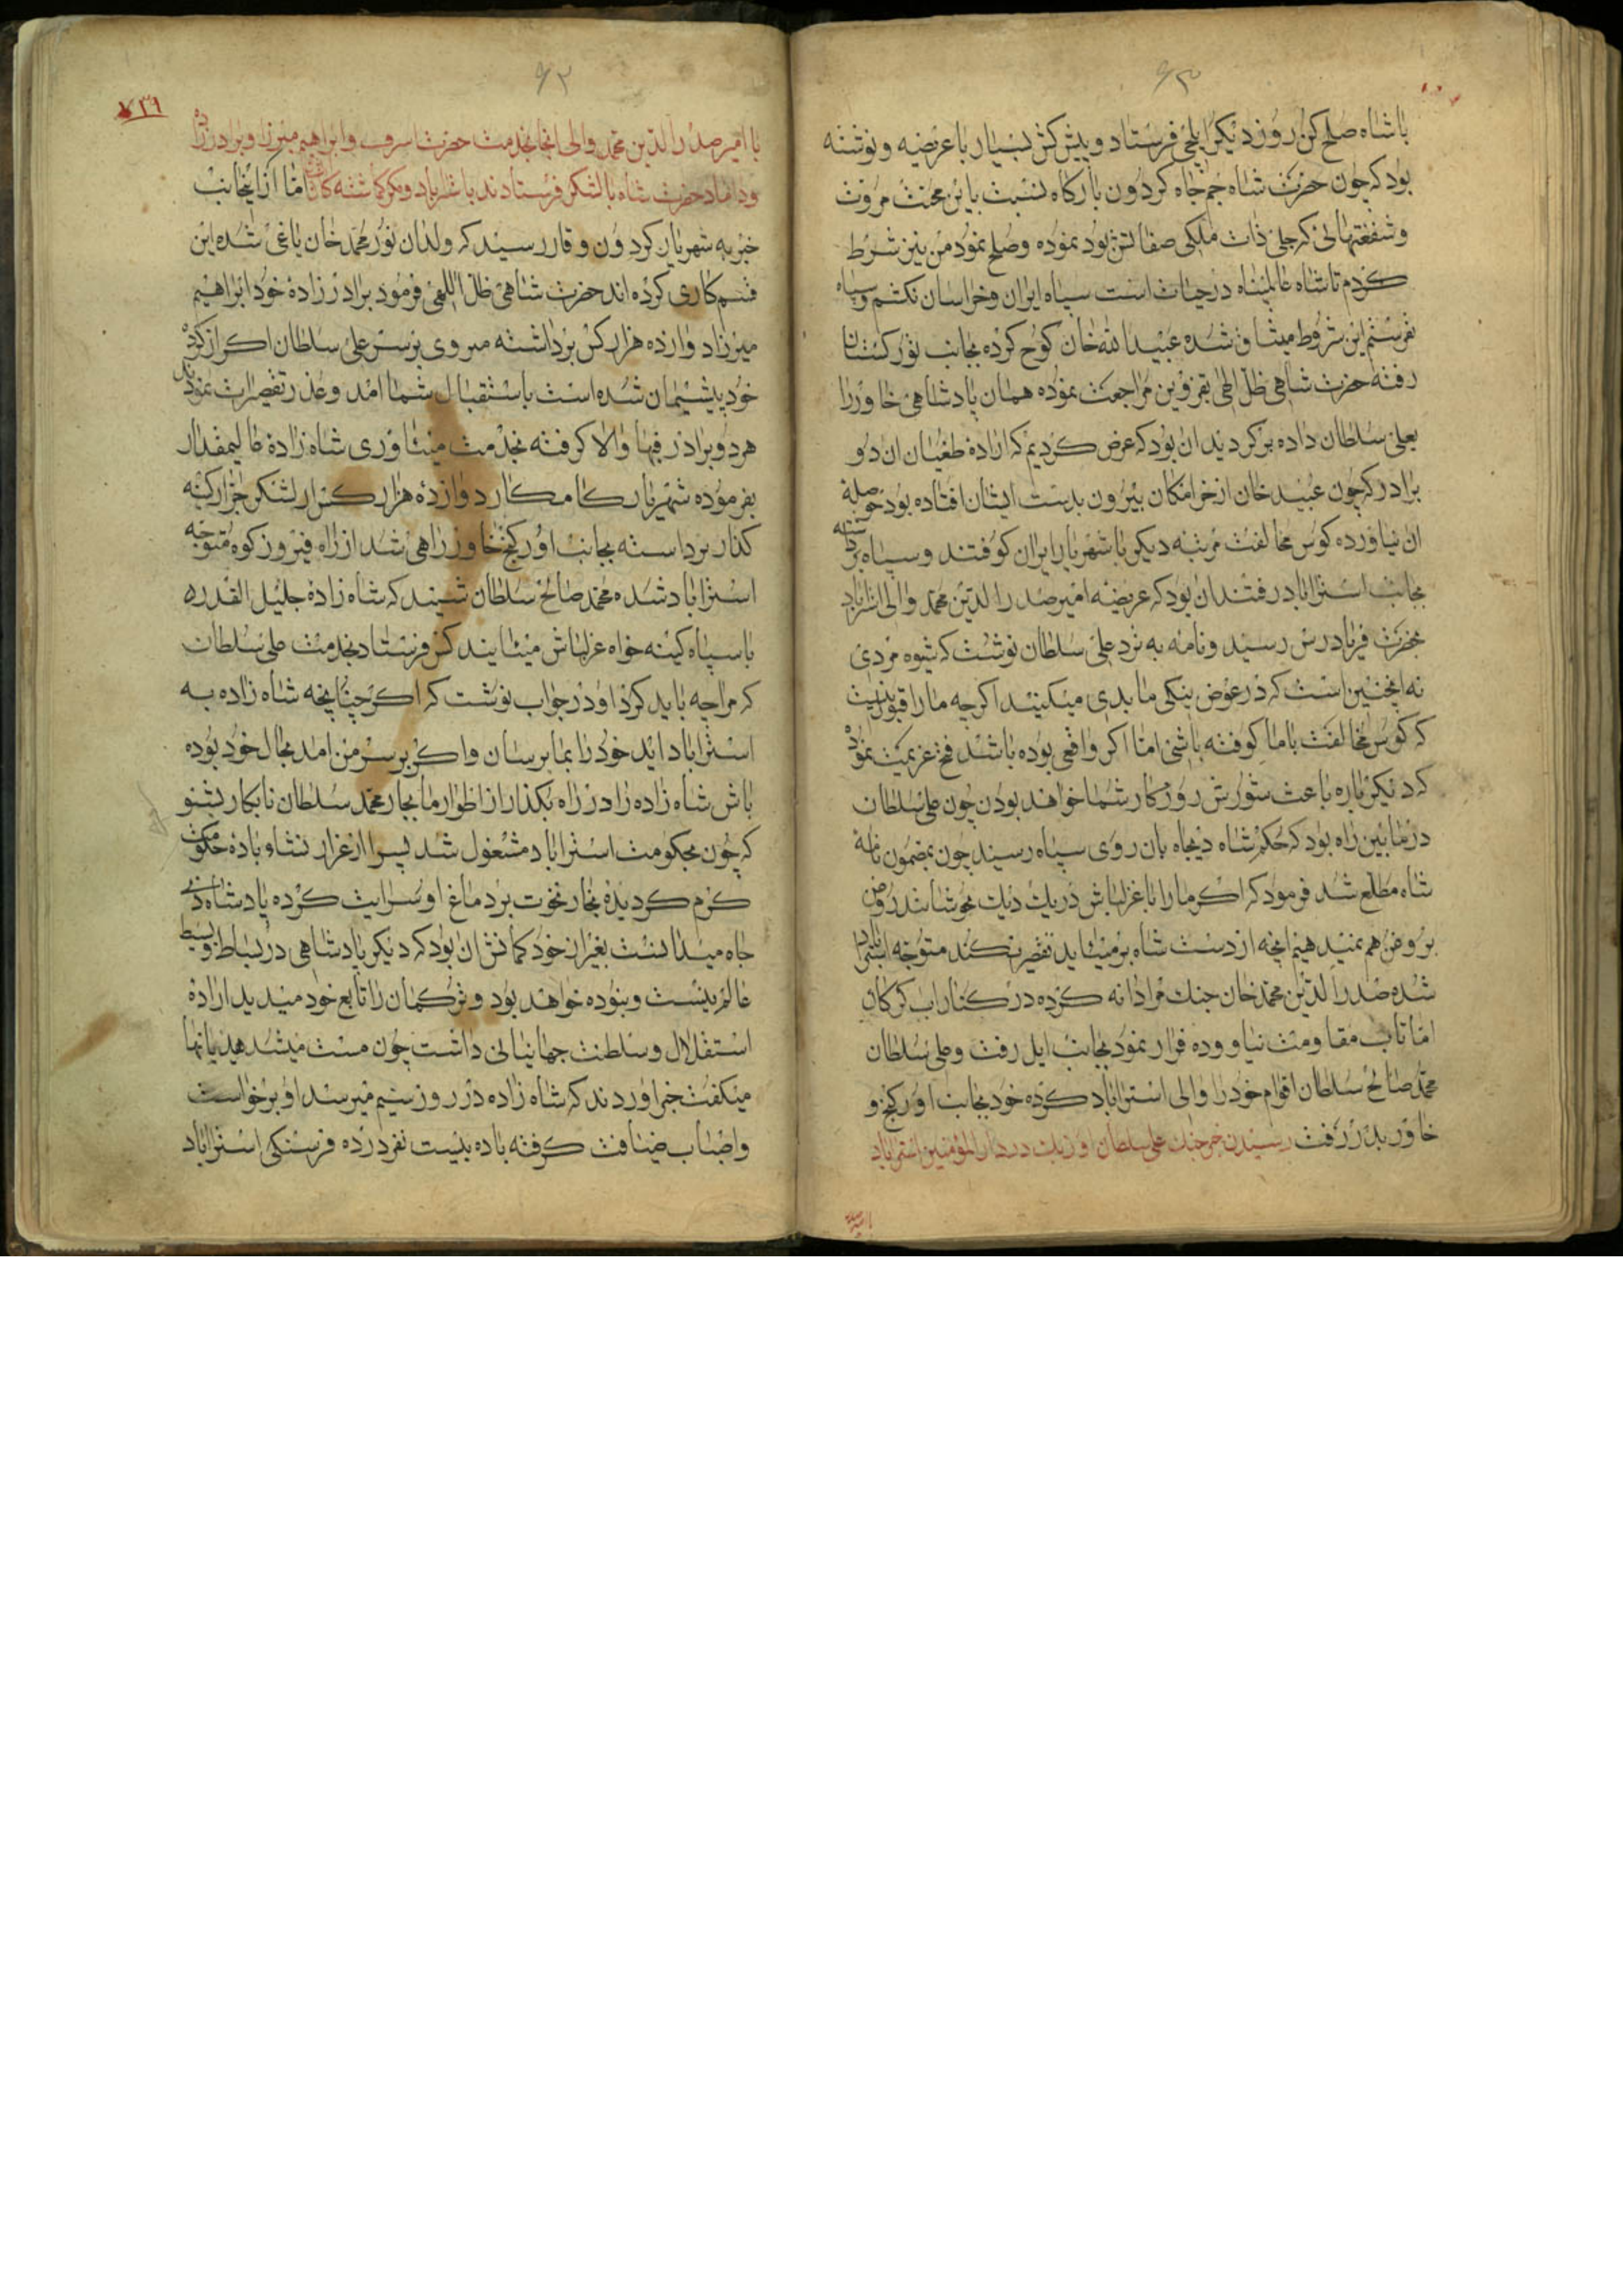 ۶۳
با شاه صلح کن روز دیکر ایلچی فرستاد و پیش کش بسیار با عریضه و نوشته
بود که چون حضرت شاه جم جاه کردون بارکاه نسبت باین محنت مروت
و شفقتهائی که جلی ذات ملکی صفاتش بود نموده و صلح نمود من نیز شرط
کردم تا شاه عالمپناه در حیات است سپاه ایران و خراسان نکشم و سپاه
نفرستم این شروط میثاق شده عبیدالله خان کوچ کرده بجانب
رفته حضرت شاهی ظل الهی بقزوین مراجعت نموده همان پادشاهی خاور را
بعلی سلطان داده برکردیدند ان بود که عرض کردیم که اراده طغیان ان دو
برادر که چون عبید خان از خرامکان بیرون بدست ایشان افتاده بود حوصلهٔ
ان نیاورده کوس مخالفت مرتبه دیکر با شهریار ایران کوفتند و سپاه برداشته
بجانب استراباد رفتند ان بود که عریضه امیر صدرالدین محمد والی استراباد
بحضرت فریادرس رسید و نامه به نزد علی سلطان نوشت که شیوه مردی
نه اینچنین است که در عوض نیکی ما بدی میکنید اکرچه ما را قبول نیست
که کوس مخالفت با ما کوفته باشی اما اکر واقعی بوده باشد فسخ عزیمت نموده
که دیکرباره باعث شورش روزکار شما خواهند بودن چون علی سلطان
در مابین راه بود که حکم شاه دیجاه بان روی سپاه رسید چون بمضمون نامهٔ
شاه مطلع شد فرمود که اکر ما را با غزلباش در یک دیک بجوشانند روغن
بروغن هم نمیدهیم انچه از دست شاه برمیاید تقصیر نکند متوجه استراباد
شده صدرالدین محمد خان جنک مردانه کرده در کنار اب کرکان
اما تاب مقاومت نیاورده فرار نمود بجانب ایل رفت و علی سلطان
محمد صالح سلطان اقوام خود را والی استراباد کرده خود بجانب اورکنج و
خاور بدر رفت رسیدن خبر جنک علی سلطان اوزبک در دارالمؤمنین استراباد
۶۲
۷۳۶
با امیر صدرالدین محمد والی انجا بخدمت حضرت اشرف و ابراهیم میرزا و برادرزاده
و داماد حضرت شاه با لشکر فرستادند باستراباد و اما از اینجانب
خبر به شهریار کردون وقار رسید که ولدان نور محمد خان یاغی شده این
قسم کاری کرده اند حضرت شاهی ظل اللهی فرمود برادرزادهٔ خود ابراهیم
میرزا دوازده هزار کس برداشته میروی بر سر علی سلطان اکر از کردهٔ
خود پشیمان شده است باستقبال شما امد و عذر تقصیرات نمودند
هر دو برادر فبها والا کرفته بخدمت میاوری شاه زادهٔ عالیمقدار
بفرموده شهریار کامکار دوازدهٔ هزار کس از لشکر جرار کینه
کذار برداشته بجانب اورکنج خاور راهی شد از راه فیروزکوه متوجه
استراباد شده محمد صالح سلطان شنید که شاه زادهٔ جلیل القدر
با سپاه کینه خواه غزلباش میایند کس فرستاد بخدمت علی سلطان
که مرا چه باید کرد او در جواب نوشت که اکر چنانچه شاه زاده به
استراباد اید خود را بما برسان و اکر بر سر من امد بحال خود بوده
باش شاه زاده را در راه بکذار از اطوار نابجار محمد سلطان نابکار بشنو
که چون بحکومت استراباد مشغول شد حکومت
کرم کردیده بخار نخوت بر دماغ او سرایت کرده پادشاه ذی
جاه میدانست بغیر از خود کمانش ان بود که دیکر پادشاهی در بساط و بسیط
عالم نیست و نبوده خواهد بود و ترکمان را تابع خود میدید ارادهٔ
استقلال و سلطنت جهانبانی داشت چون مست میشد هذیانها
میکفت خبر اوردند که شاه زاده در روز سیم میرسد او برخواست
و اسباب ضیافت کرفته با ده بیست نفر در ده فرسنکی استراباد